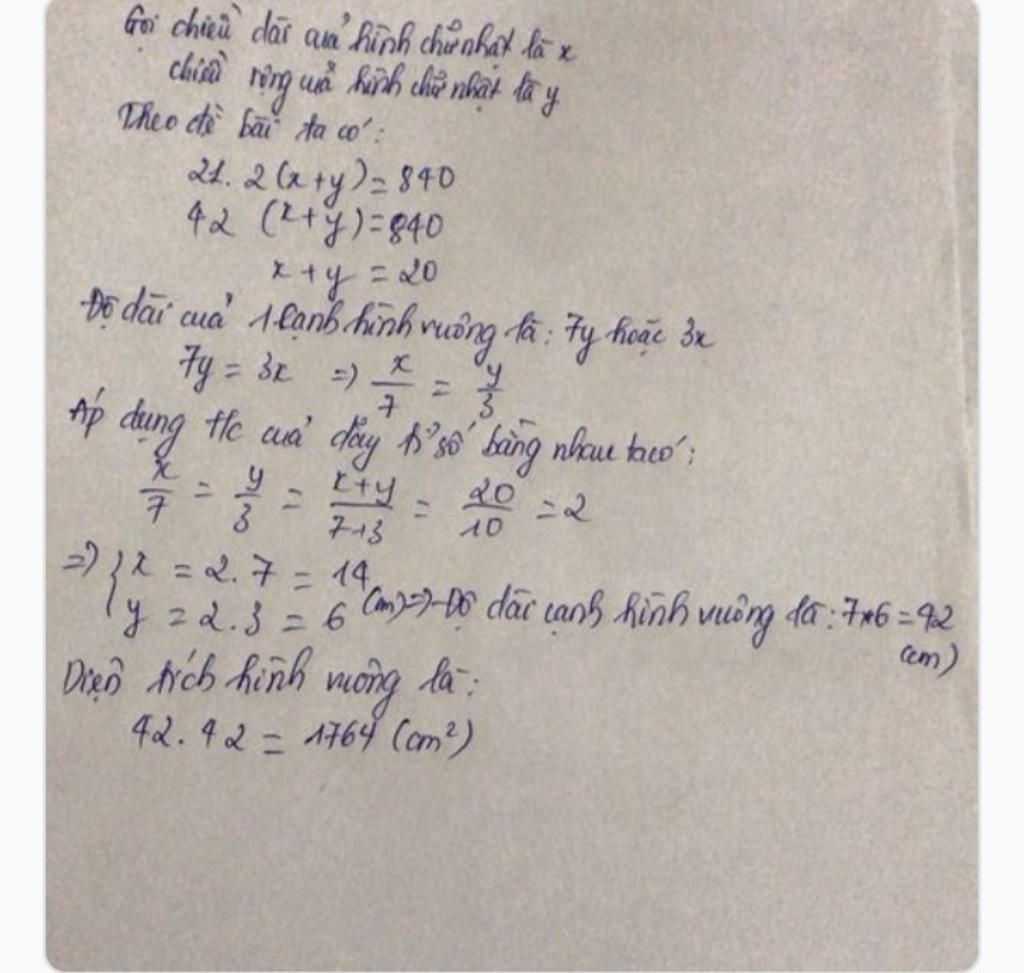 Gọi chiều dài của hình chữ nhật là x
chiều rộng của hình chữ nhật là y
Theo đề bài ta có:
21. 2(x+y)=840
42 (x+y)=840
x+y = 20
Độ dài của 1 cạnh hình vuông là: 7y hoặc 3x
7y = 3x => x/7 = y/3
Áp dụng t/c của dãy tỉ số bằng nhau ta có:
x/7 = y/3 = x+y/7+3 = 20/10 = 2
=> { x = 2.7 = 14
y = 2.3 = 6 (cm) => Độ dài cạnh hình vuông là: 7*6=42
(cm)
Diện tích hình vuông là:
42.42 = 1764 (cm²)